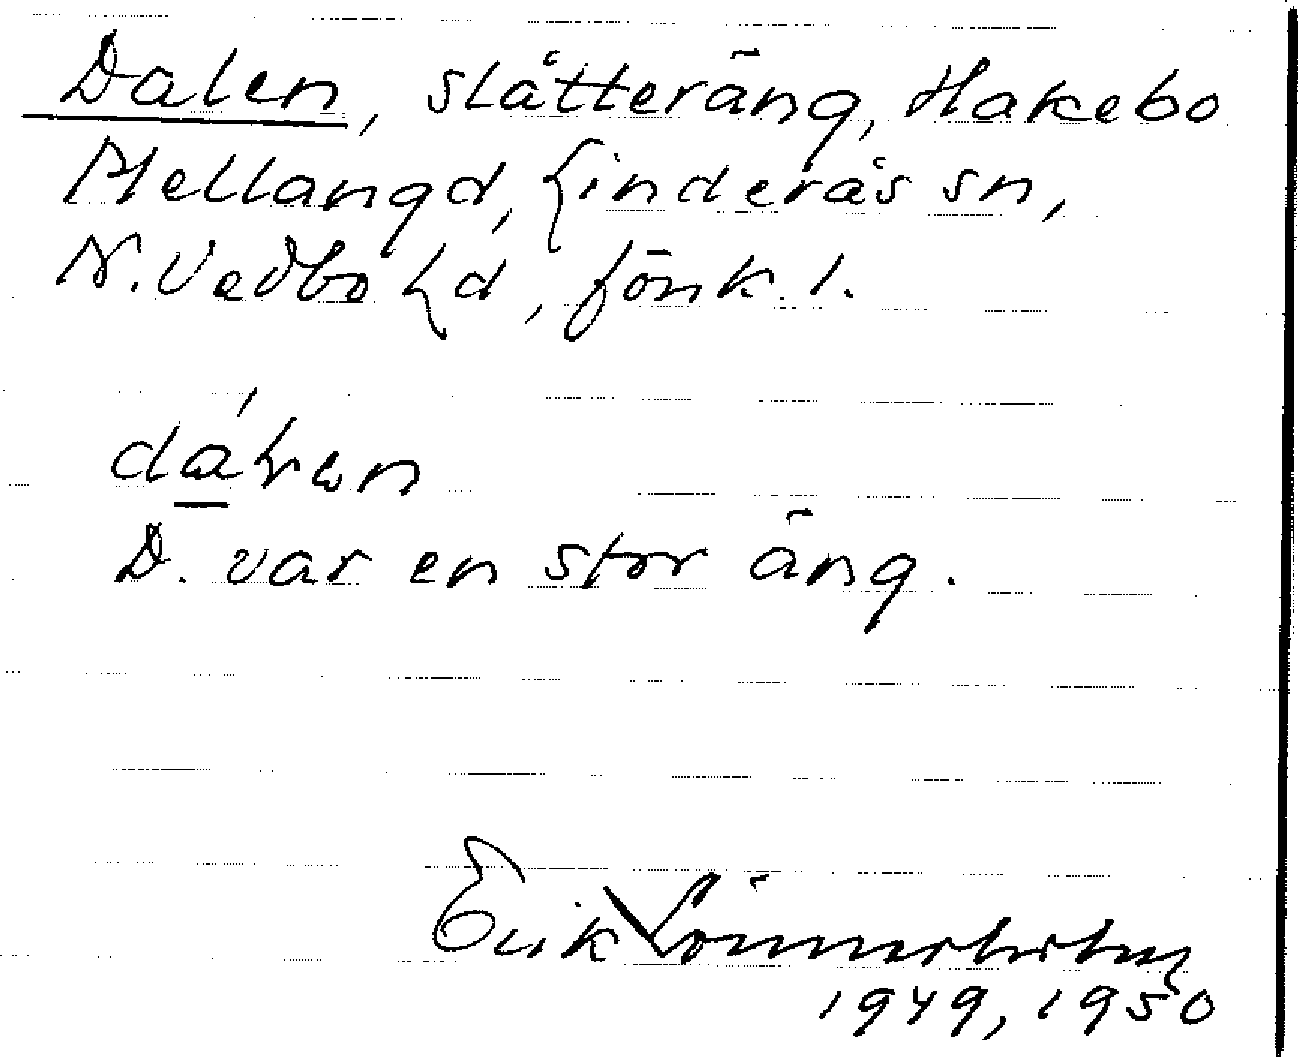 Dalen, slåtteräng, Hakebo
Mellangd, Linderås sn,
N. Vedbo hd, Jönk. l.
D. var en stor äng.
Erik Lönnerholm
1949, 1950